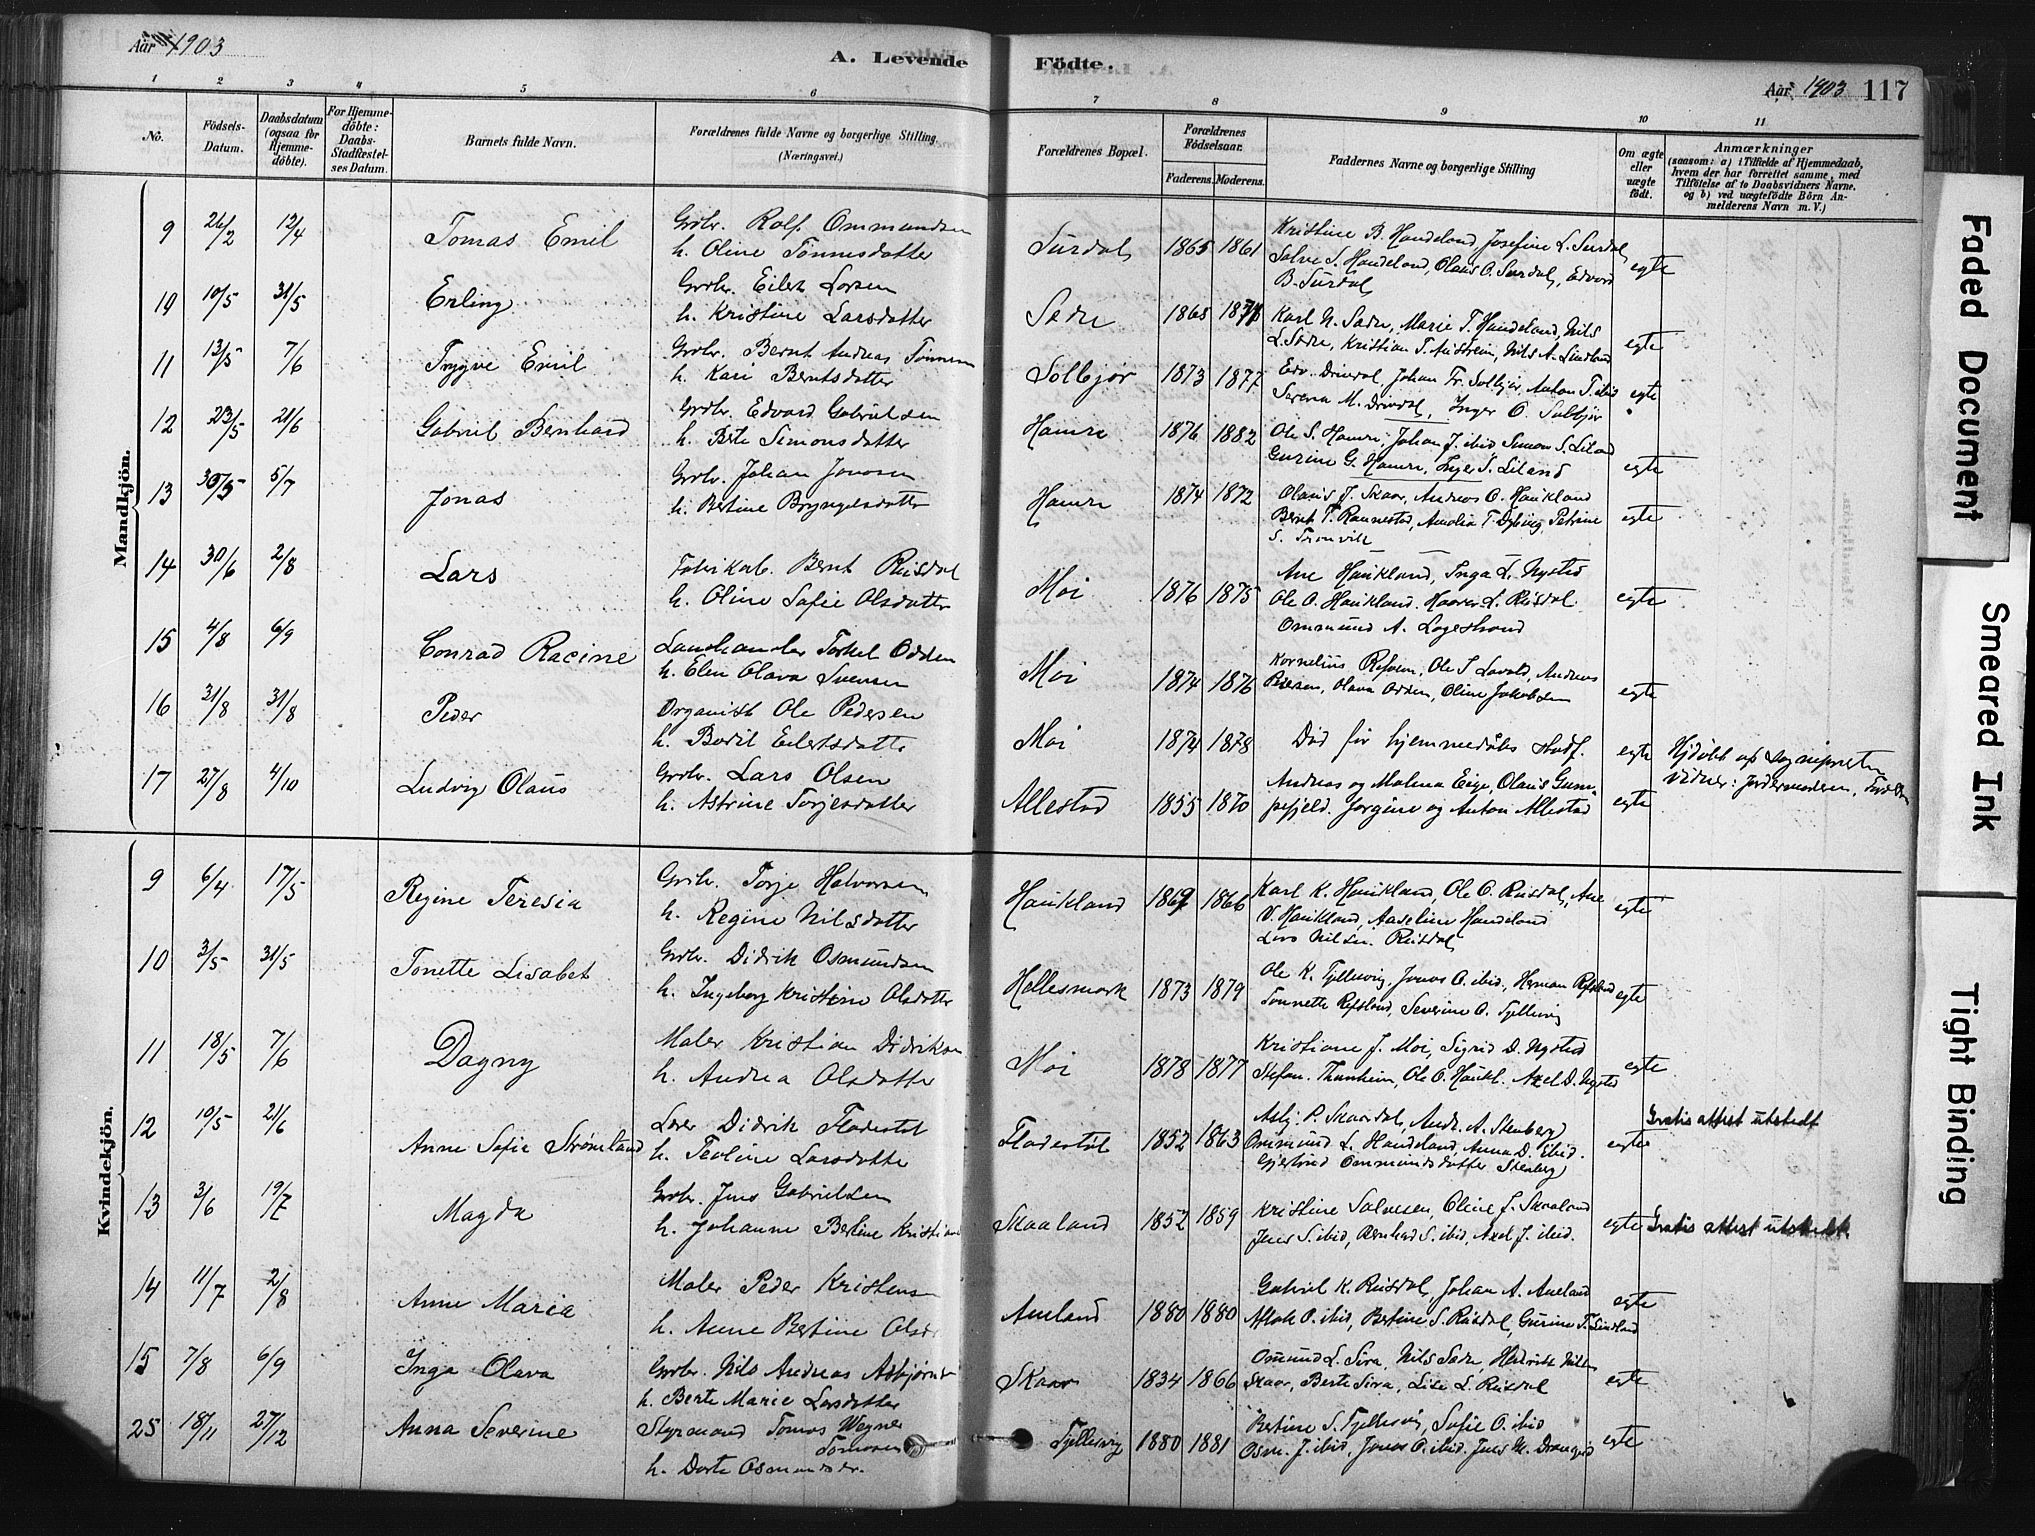 Aar 1903
A. Levende Födte.
Aar 1903 117
1 2 3 4 5 6 7 8 9 10 11
No.
Födsels-Datum.
Daabsdatum (ogsaa for Hjemme-döbte).
For Hjemme-döbte: Daabs-Stadfæstel-ses Datum.
Barnets fulde Navn.
Forældrenes fulde Navne og borgerlige Stilling (Næringsvei.)
Forældrenes Bopæl.
Forældrenes Födselsaar.
Faderens. Moderens.
Faddernes Navne og borgerlige Stilling
Om ægte eller uægte födt.
Anmærkninger
(saasom: a) i Tilfælde af Hjemmedaab, hvem der har forrettet samme, med Tilföielse af to Daabsvidners Navne. og b) ved uægtefödte Börn An-melderens Navn m. V.)
Mandkjön.
9 26/2 12/4 Tomas Emil Grbr. Rolf Ommundsen
h. Oline Tönnesdatter Surdal 1865 1861 Kristine B. Handeland, Josefine L. Surdal
Salve S. Handeland, Olaus O. Surdal, Edvard
B. Surdal egte
10 10/5 31/5 Erling Grbr. Eilert Larsen
h. Kristine Larsdatter Sædre 1868 Karl N. Sædre, Marie T. Handeland, Nils
L. Sædre, Kristian T. Austrheim, Nils A. Lindland egte
11 13/5 7/6 Trygve Emil Grbr. Bernt Andreas Tönnesen
h. Kari Berntsdatter Solbjör 1873 1877 Edv. Drivdal, Johan Fr. Solbjör, Anton T. ibid
Serena M. Drivdal, Inger O. Solbjör egte
12 23/5 21/6 Gabriel Bernhard Grbr. Edvard Gabrielsen
h. Berte Simonsdatter Hamre 1876 1882 Ole S. Hamre, Johan J. ibid Simon S. Liland
Gurine G. Hamre, Inger S. Liland egte
13 30/5 5/7 Jonas Grbr. Johan Jonasen
h. Bertine Bryngelsdatter Hamre 1874 1872 Olaus J. Skaar, Andreas O. Haukland
Bernt T. Rannestad, Amalia T. Dybing, Petrine
S. Tronvik egte
14 30/6 2/8 Lars Fabrikarb. Bernt Rusdal
h. Oline Sofie Olsdatter Moi 1876 1875 Ane Haukland, Inga L. Nysted
Ole O. Haukland. Haaver L. Rusdal
Ommund A. Logestrand egte
15 4/8 6/9 Conrad Racine Landhandler Torkel Odden
h. Elen Olava Svensen Moi 1874 1876 Kornelius Refsven, Ole S Lavold, Andreas
Olava Odden, Oline Jakobsen egte
16 31/8 31/8 Peder Organist Ole Pedersen
h. Bodil Eilertsdatter Moi 1874 1878 Död för hjemmedåbs stadf. egte Hjdöbt af sogneprsten
Vidner: Jordemoderen,
17 27/8 4/10 Ludvig Olaus Grbr. Lars Olsen
h. Astrine Torjesdatter Allestad 1855 1870 Andreas og Malena Eige, Olaus Gum-
pefjeld. Jorgine og Anton Allestad egte
Kvindekjön.
9 6/4 17/5 Regine Teresia Grbr. Torje Halvorsen
h. Regine Nilsdatter Haukland 1867 1866 Karl K. Haukland, Ole O. Rusdal, Ane
V. Haukland, Aaseline Handeland
Lars Nilsen Rusdal egte
10 3/5 31/5 Tonette Lisabet Grbr. Didrik Osmundsen
h. Ingeborg Kristine Olsdatter Hellesmark 1873 1879 Ole K. Fjellesvig, Jonas O. ibid, Herman Refsland
Tonnette Refsland, Severine O. Fjellsvig egte
11 18/5 7/6 Dagny Maler Kristian Didriksen
h. Andrea Olsdatter Moi 1878 1877 Kristiane J. Moi, Sigrid D. Nysted
Stefan. Thunheim, Ole O. Haukl. Axel D. Nysted egte
12 10/5 21/6 Anne Sofie Strömland Didrik Fladestöl
h. Teoline Larsdatter Fladestöl 1852 1863 Asbj. P. Skaardal, Andr. A. Stenberg
Ommund L. Handeland, Anna D. Ibid.
Gjertrud Ommundsdatter Stenberg egte Gratis attest utstedt
13 3/6 19/7 Magda Grbr. Jens Gabrielsen
h. Johanne Bertine Skaaland 1852 1859 Kristine Salvesen, Oline J. Skaaland
Jens S. ibid, Bernhard S. ibid, Axel J. ibid. egte Gratis attest utstedt
14 11/7 2/8 Anne Maria Maler Peder Kristensen
h. Anne Bertine Aneland 1880 1880 Gabriel K. Rusdal, Johan A. Aneland
Aslak O. ibid, Bertine S. Rusdal, Gurine T. Lindland egte
15 7/8 6/9 Inga Olava Grbr. Nils Andreas
h. Berte Marie Larsdatter Skaar 1834 1866 Omund L. Sira, Nils Sædre, Hendrik
Skaar, Berte Sira, Lise L. Rusdal egte
25 18/11 27/12 Anna Severine Styrmand Tomas Wegner
Tomasen
h. Dorte Fjellesvig 1880 1881 Betine S. Fjellesvig, Sofie O. ibid
Osm. J. ibid, Jonas O. ibid. Jens M. Drangeid egte
Faded Document
Smeared Ink
Tight Binding